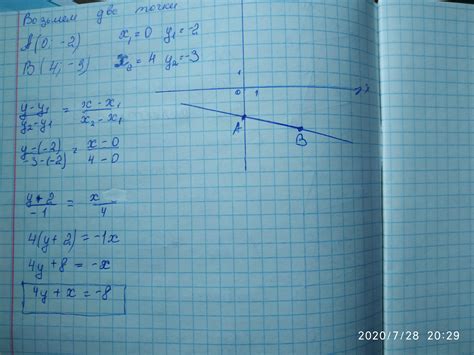 Возьмем две точки
A(0; -2) x₁=0 y₁=-2
B(4; -3) x₂=4 y₂=-3
y-y₁ / y₂-y₁ = x-x₁ / x₂-x₁
y-(-2) / -3-(-2) = x-0 / 4-0
y+2 / -1 = x / 4
4(y+2)=-1x
4y+8=-x
4y+x=-8
1
0 1 x
A
B
2020/7/28 20:29